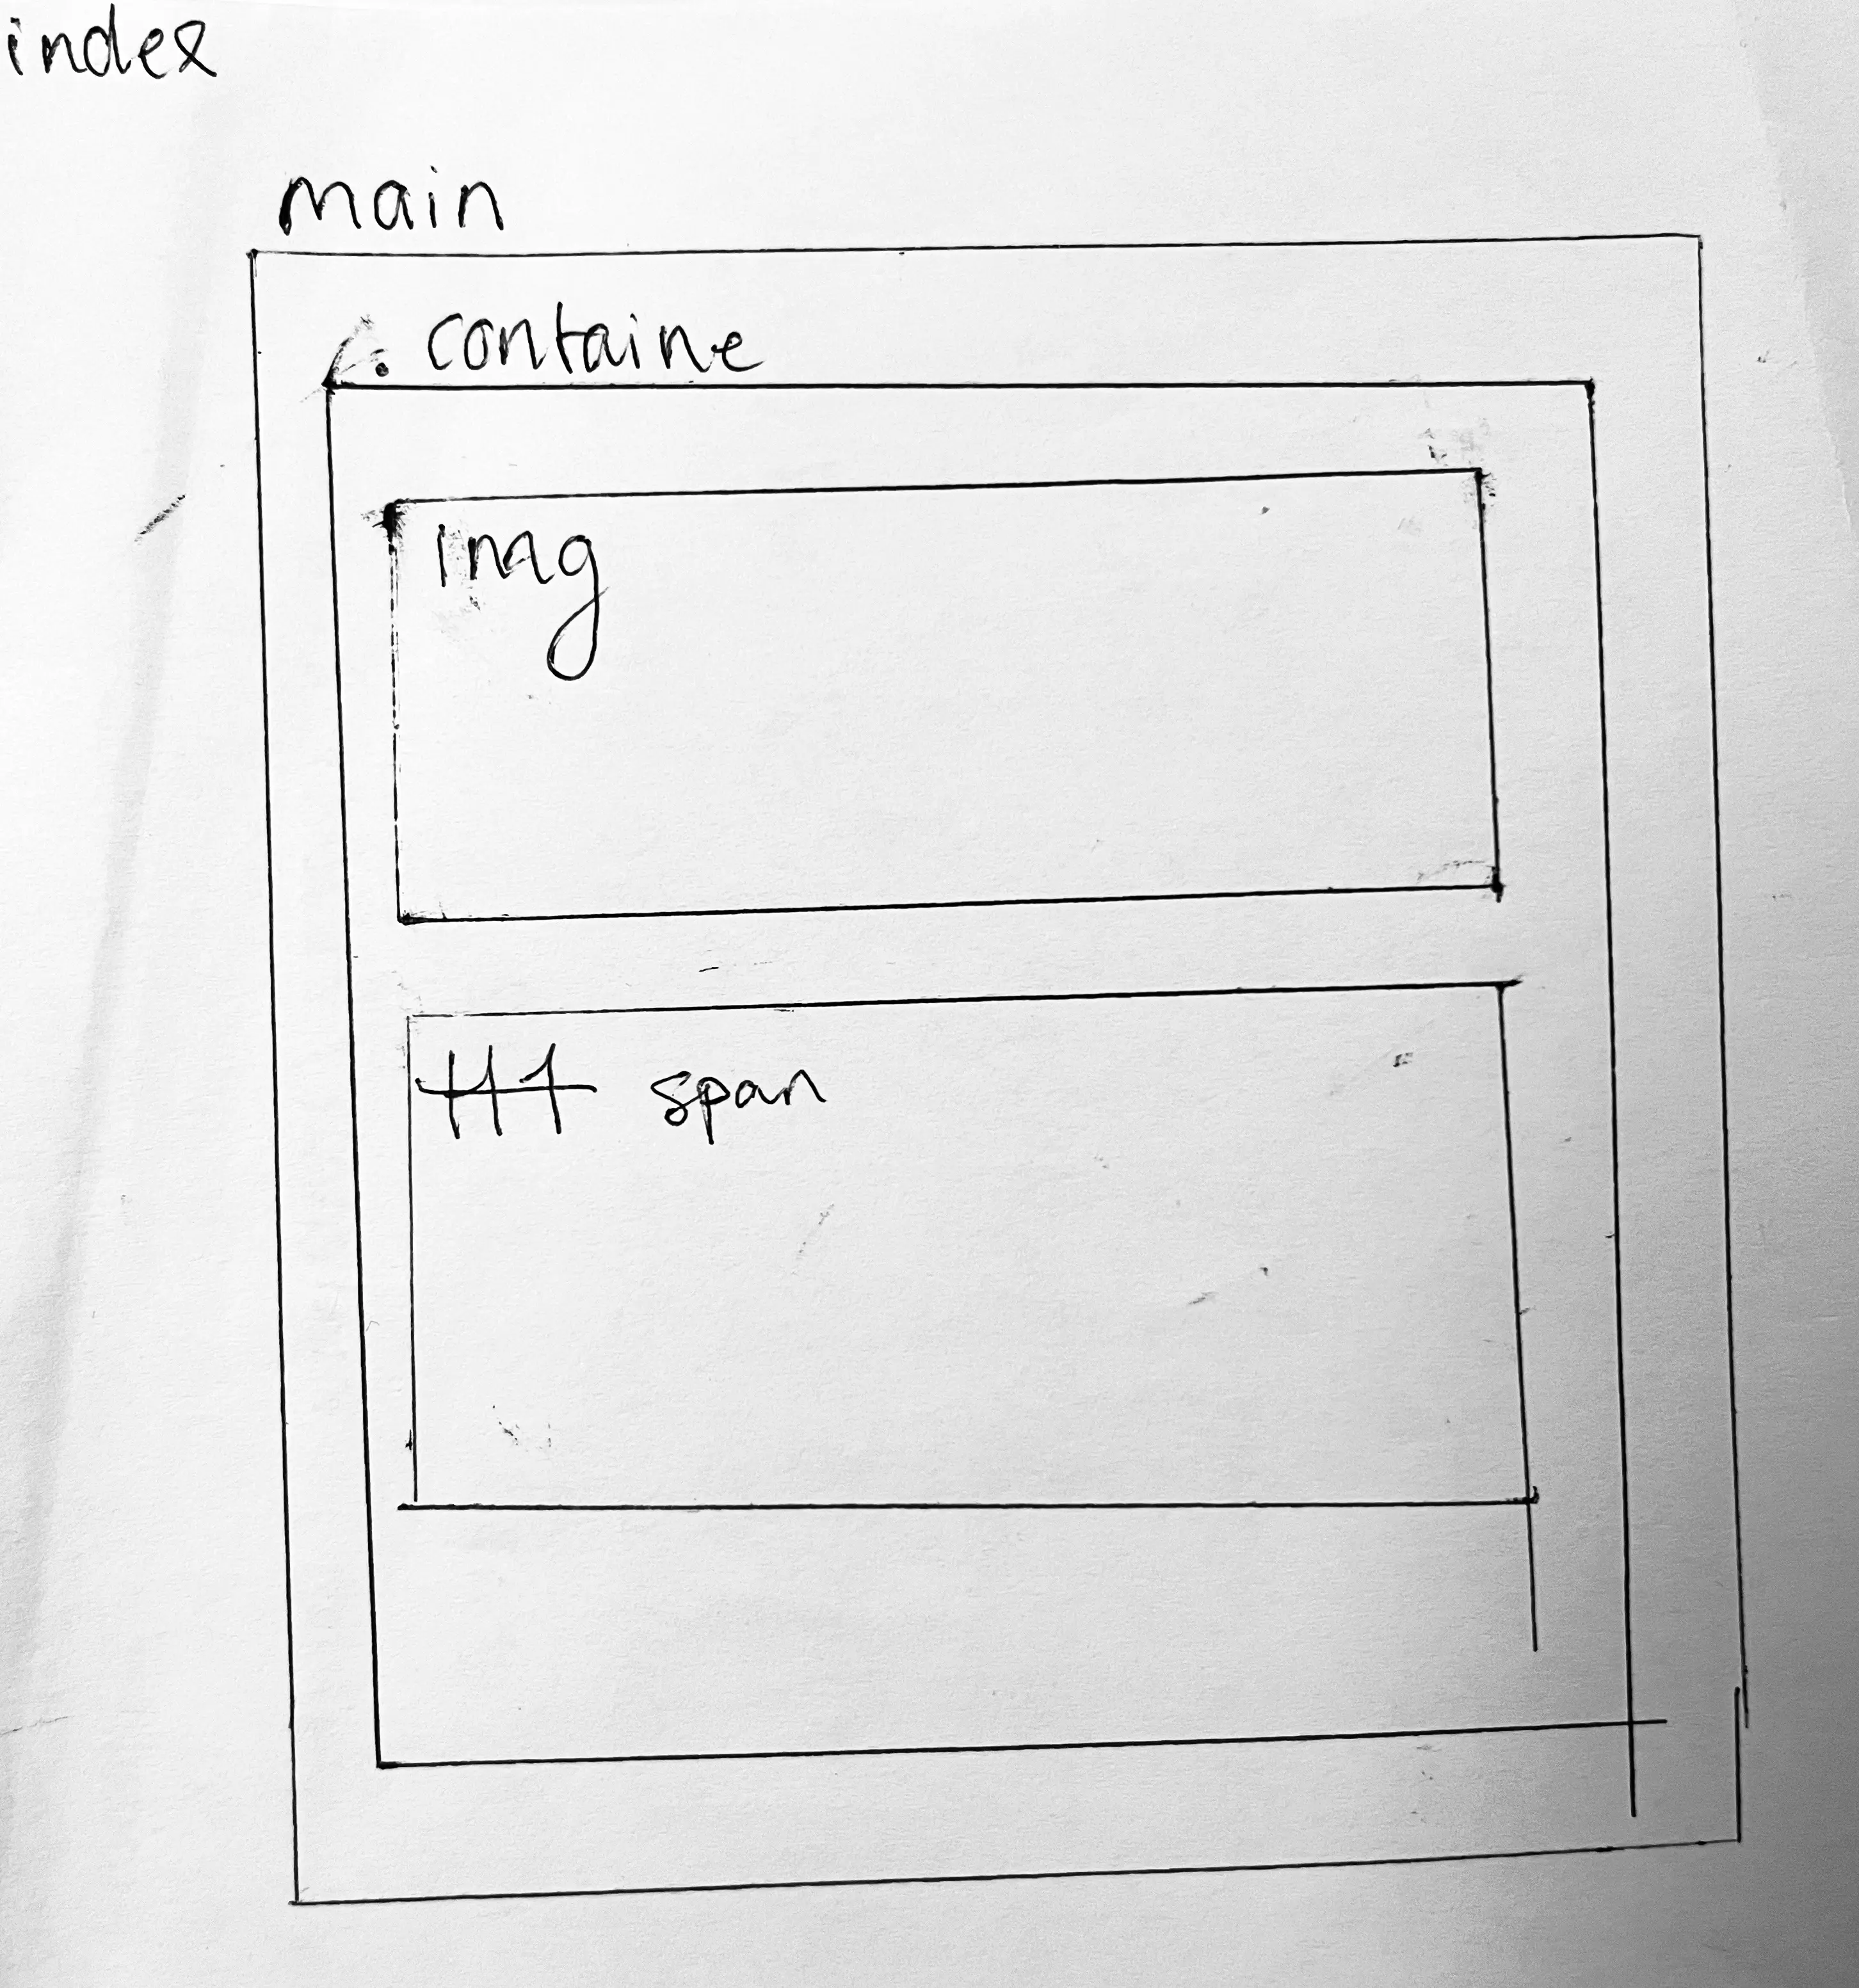 index
main
. containe
img
H1 span